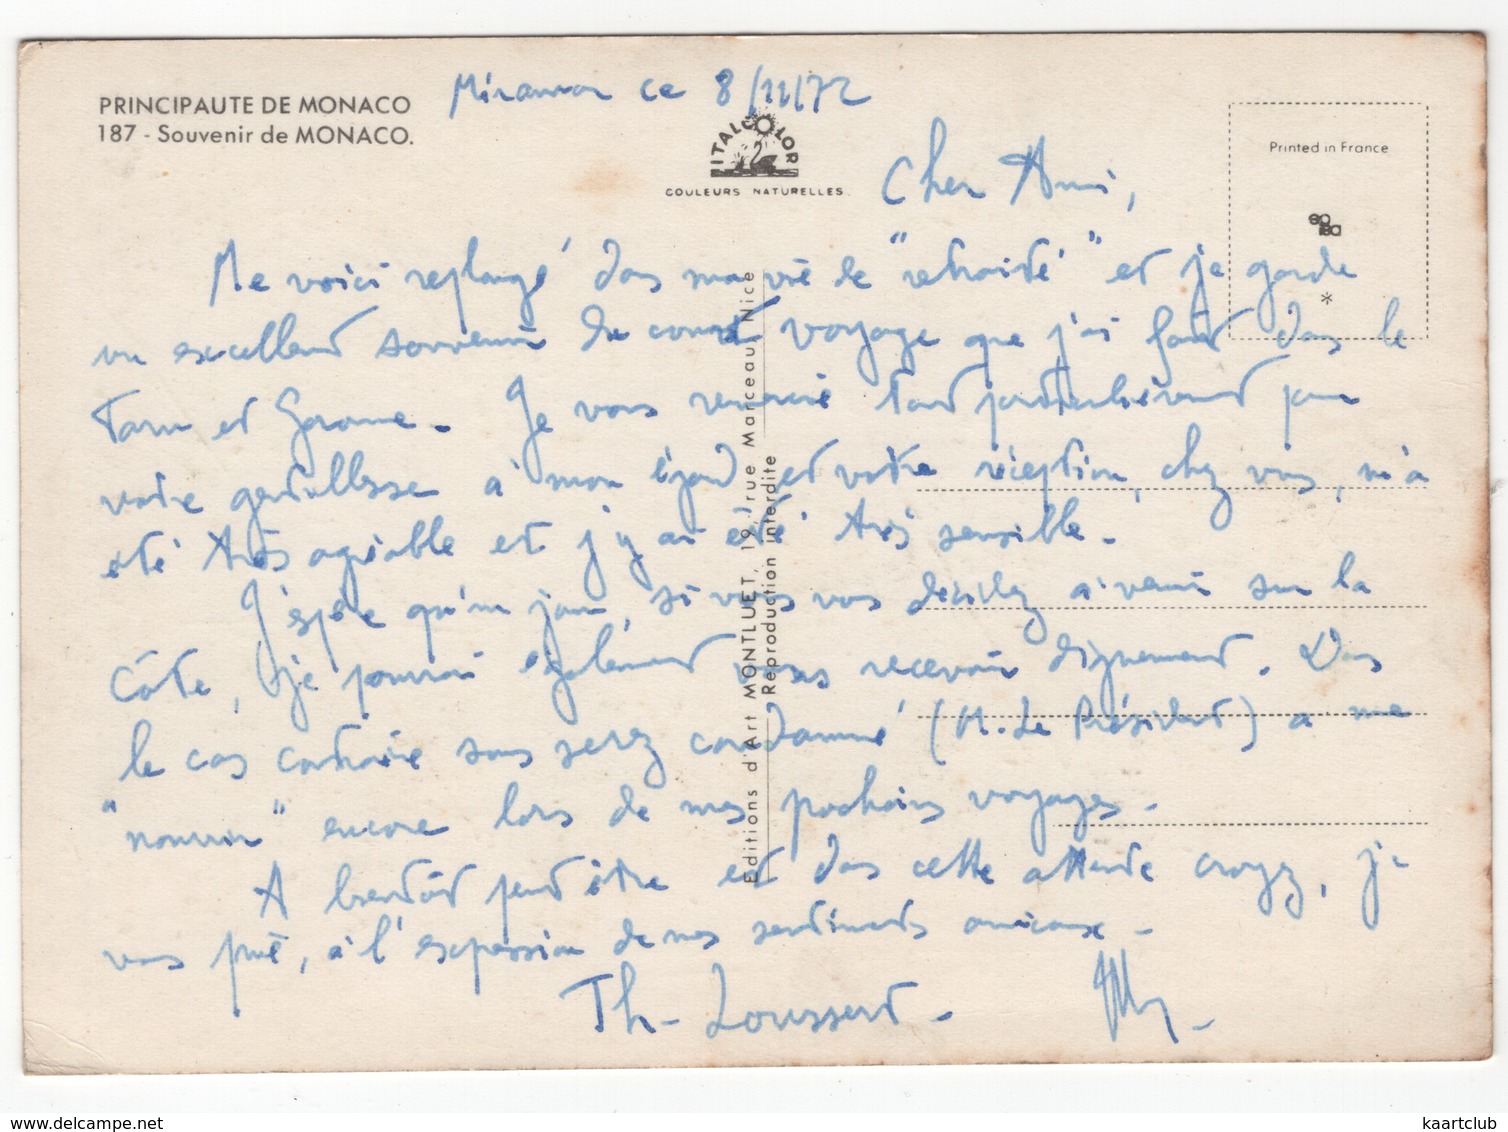 PRINCIPAUTE DE MONACO
187 - Souvenir de MONACO.
Miramar ce 8/11/72
ITALCOLOR
COULEURS NATURELLES
Printed in France
Cher Ami,
Me voici replongé dans ma vie de "retraité" et je garde
un excellent souvenir du court voyage que j'ai fait dans le
Tarn et Garonne. Je vous remercie tout particulièrement pour
votre gentillesse à mon égard et votre réception, chez vous, m'a
été très agréable et j'y ai été très sensible.
J'espère qu'un jour, si vous vous décidez à venir sur la
Côte, je pourrai également vous recevoir dignement. Dans
le cas contraire vous serez condamné (M. Le Président) a me
"nourrir" encore lors de mes prochains voyages.
A bientôt peut être et dans cette attente croyez, je
vous prie, à l'expression de mes sentiments amicaux.
Th. Loussert.
Editions d'Art MONTLUET, 19, rue Marceau Nice
Reproduction interdite
kaartclub
www.delcampe.net